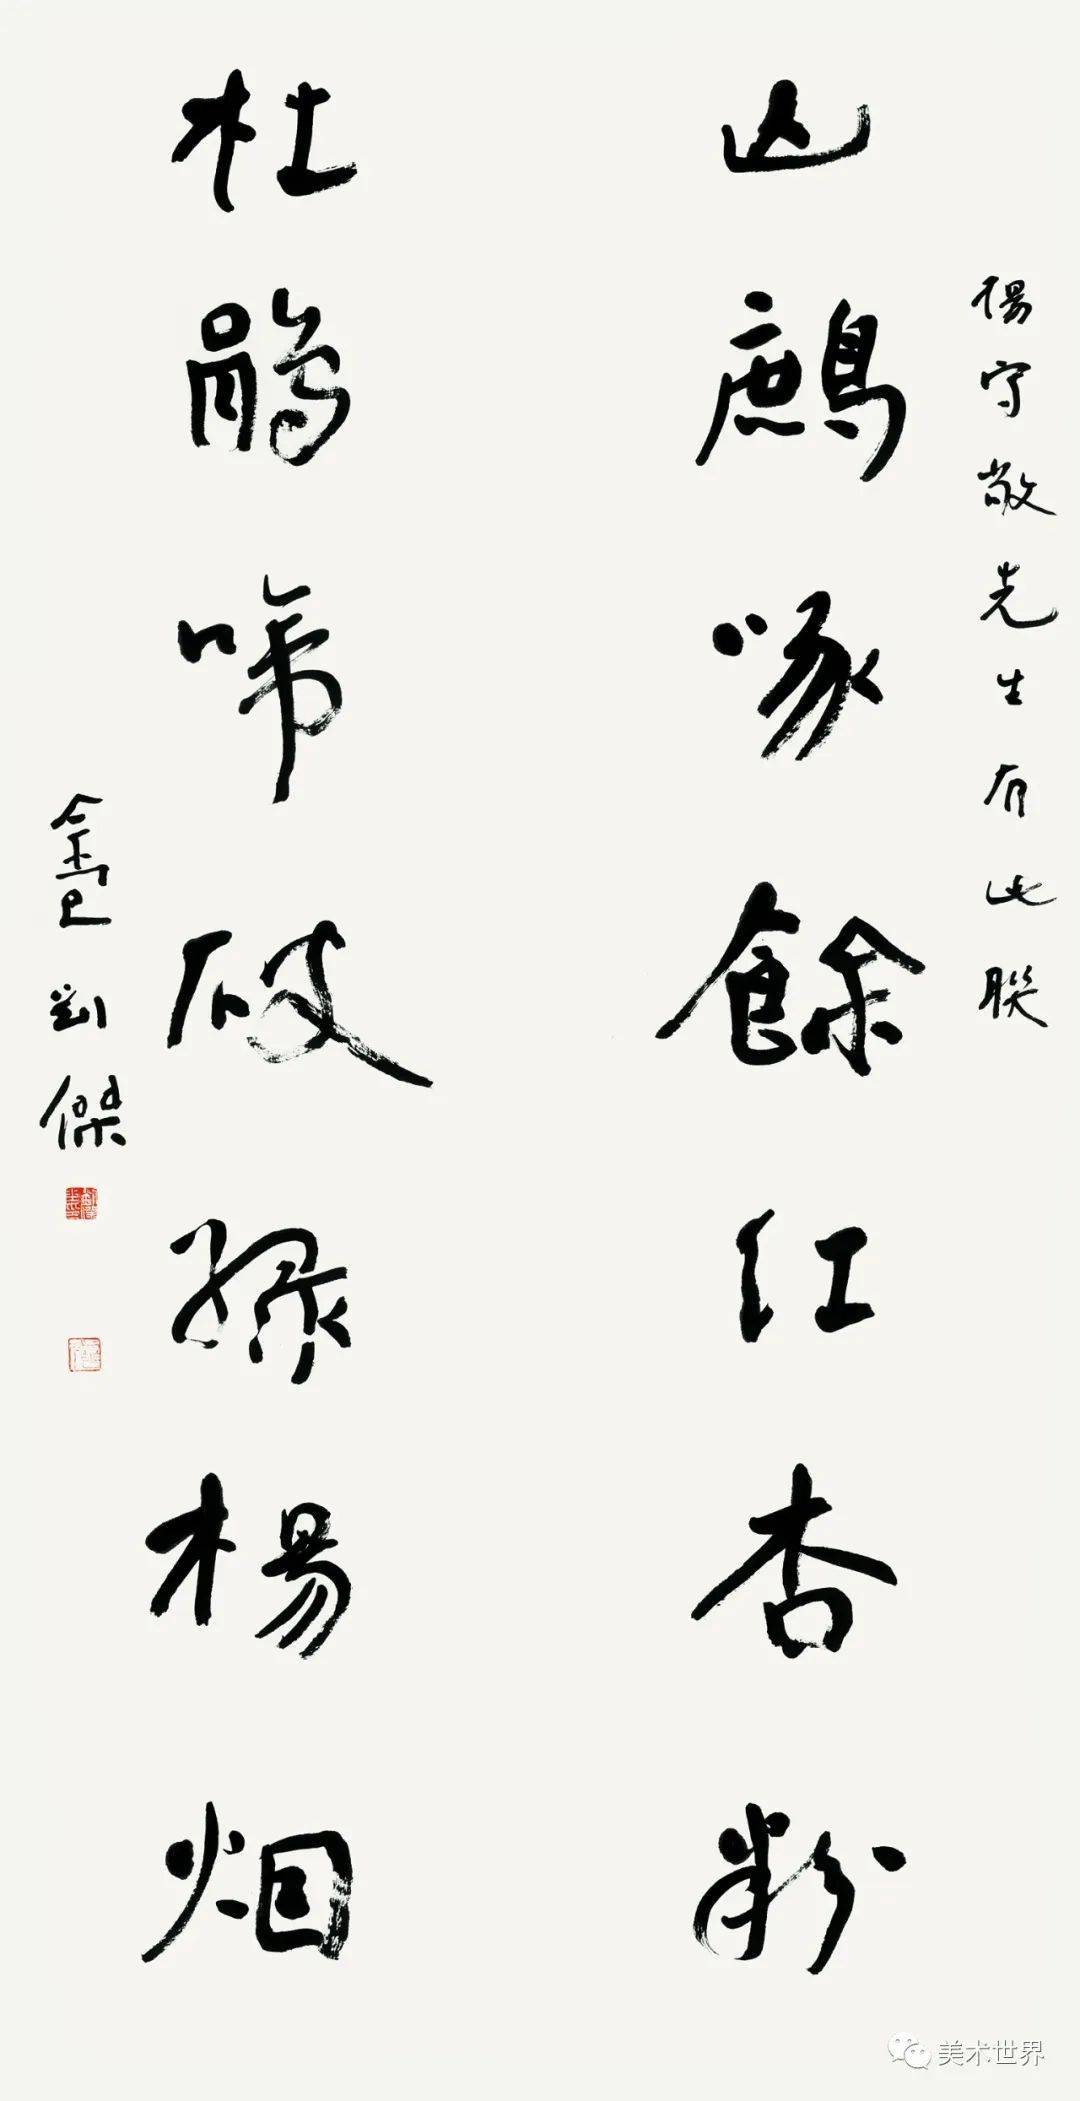 楊守敬先生有此聯
山鷓啄餘紅杏粉
杜鵑啼破綠楊烟
劉傑
美术世界